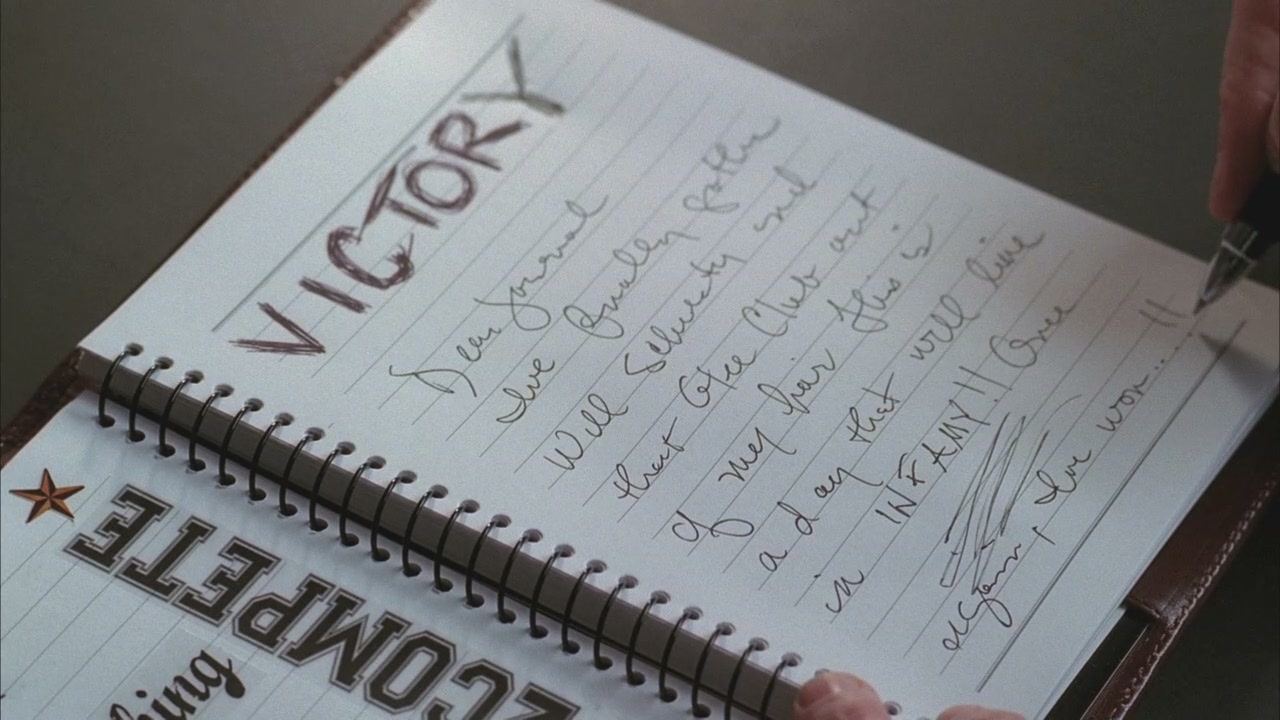 VICTORY
Dear Journal
Ive finally gotten
Will Schuesty and
that Glee Club out
of my hair this is
a day that will live
in INFAMY!! Once
again, Ive won....!!
COMPETE
hing